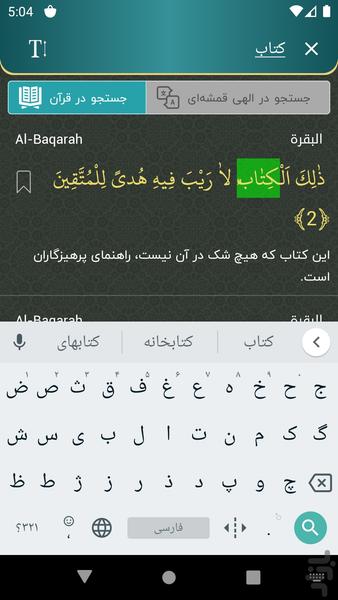 5:04
کتاب
جستجو در الهی قمشه‌ای
جستجو در قرآن
Al-Baqarah البقرة
ذَٰلِكَ الْكِتَابُ لَا رَيْبَ فِيهِ هُدًى لِلْمُتَّقِينَ
﴿2﴾
این کتاب که هیچ شک در آن نیست، راهنمای پرهیزگاران
است.
Al-Baqarah البقرة
کتاب کتابخانه کتابهای
۱ ۲ ۳ ۴ ۵ ۶ ۷ ۸ ۹ ۰
ض ص ث ق ف غ ع ه خ ح ج
ش س ی ب ل ا ت ن م ک گ
ظ ط ژ ز ر ذ د پ و چ
؟۳۲۱ ، فارسی .